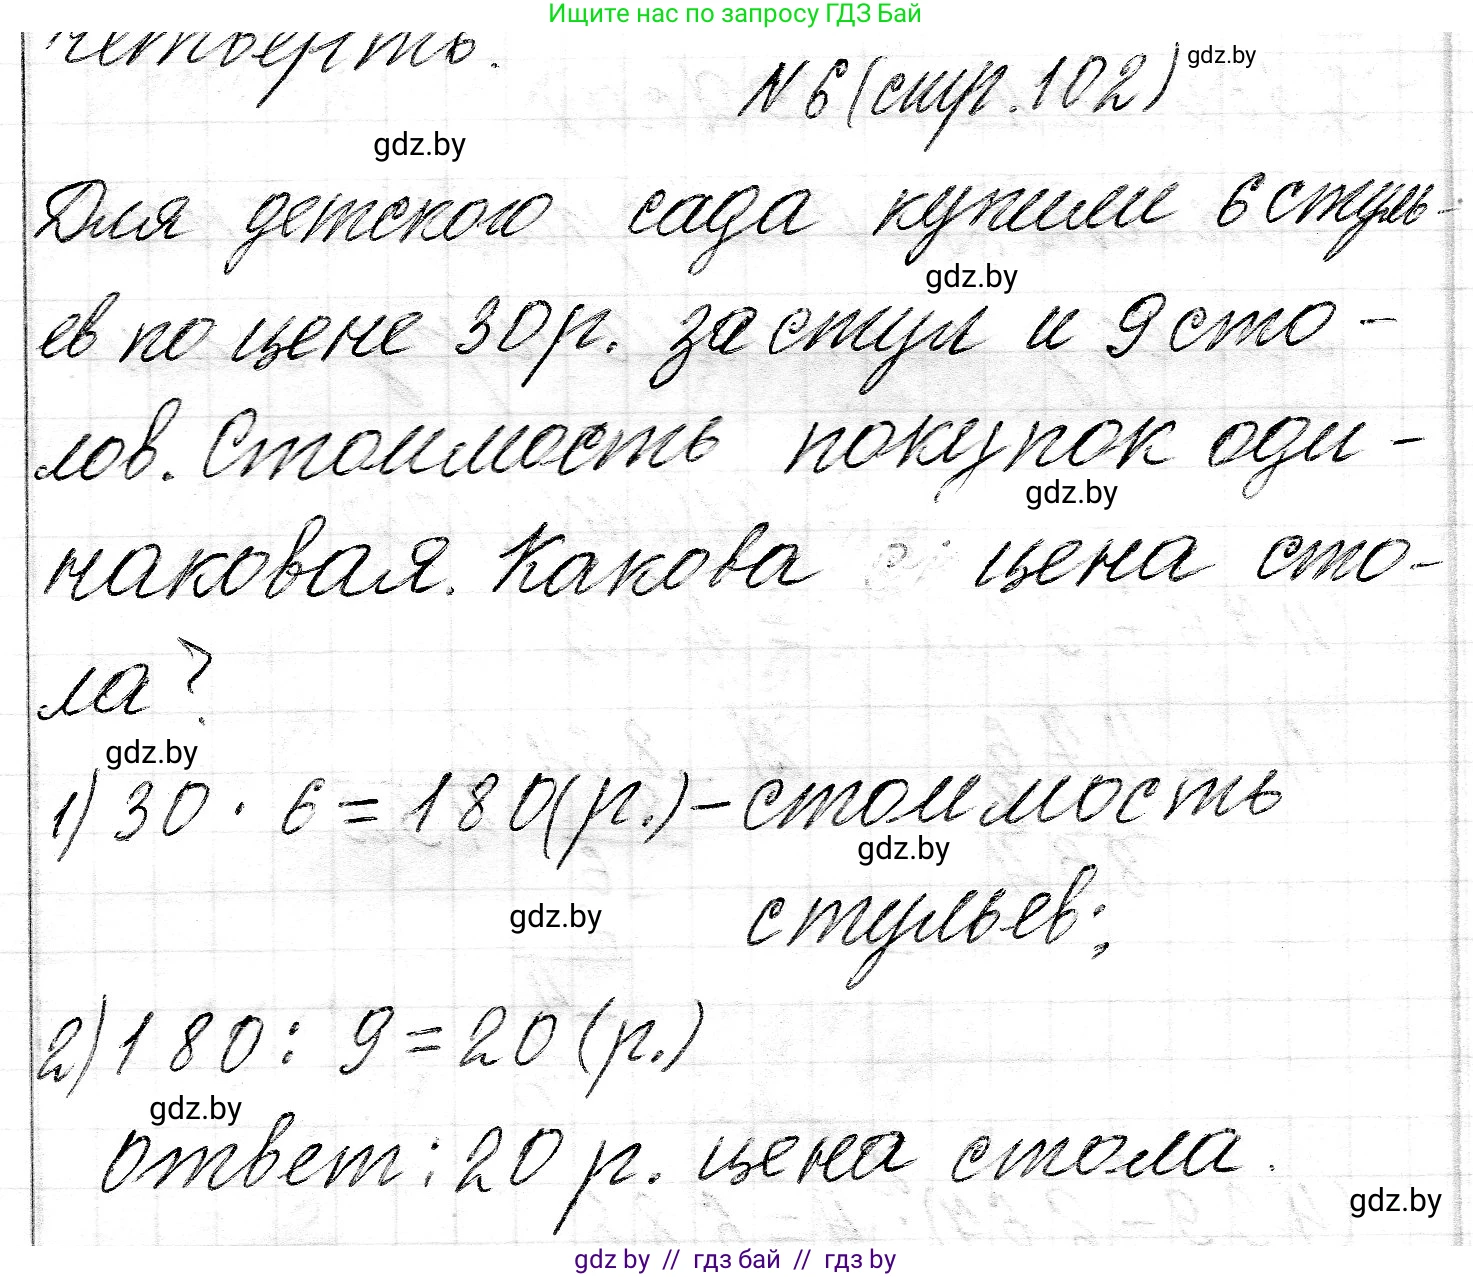 Ищите нас по запросу ГДЗ Бай
четверть.
N 6 (стр. 102) gdz.by
gdz.by
Для детского сада купили 6 стуль-
gdz.by
ев по цене 30 р. за стул и 9 сто-
лов. Стоимость покупок оди-
gdz.by
наковая. Какова цена сто-
ла?
gdz.by
1) 30 · 6 = 180 (р.) – стоимость
gdz.by
gdz.by стульев;
2) 180 : 9 = 20 (р.)
gdz.by
ответ: 20 р. цена стола.
gdz.by
gdz by // гдз бай // gdz by